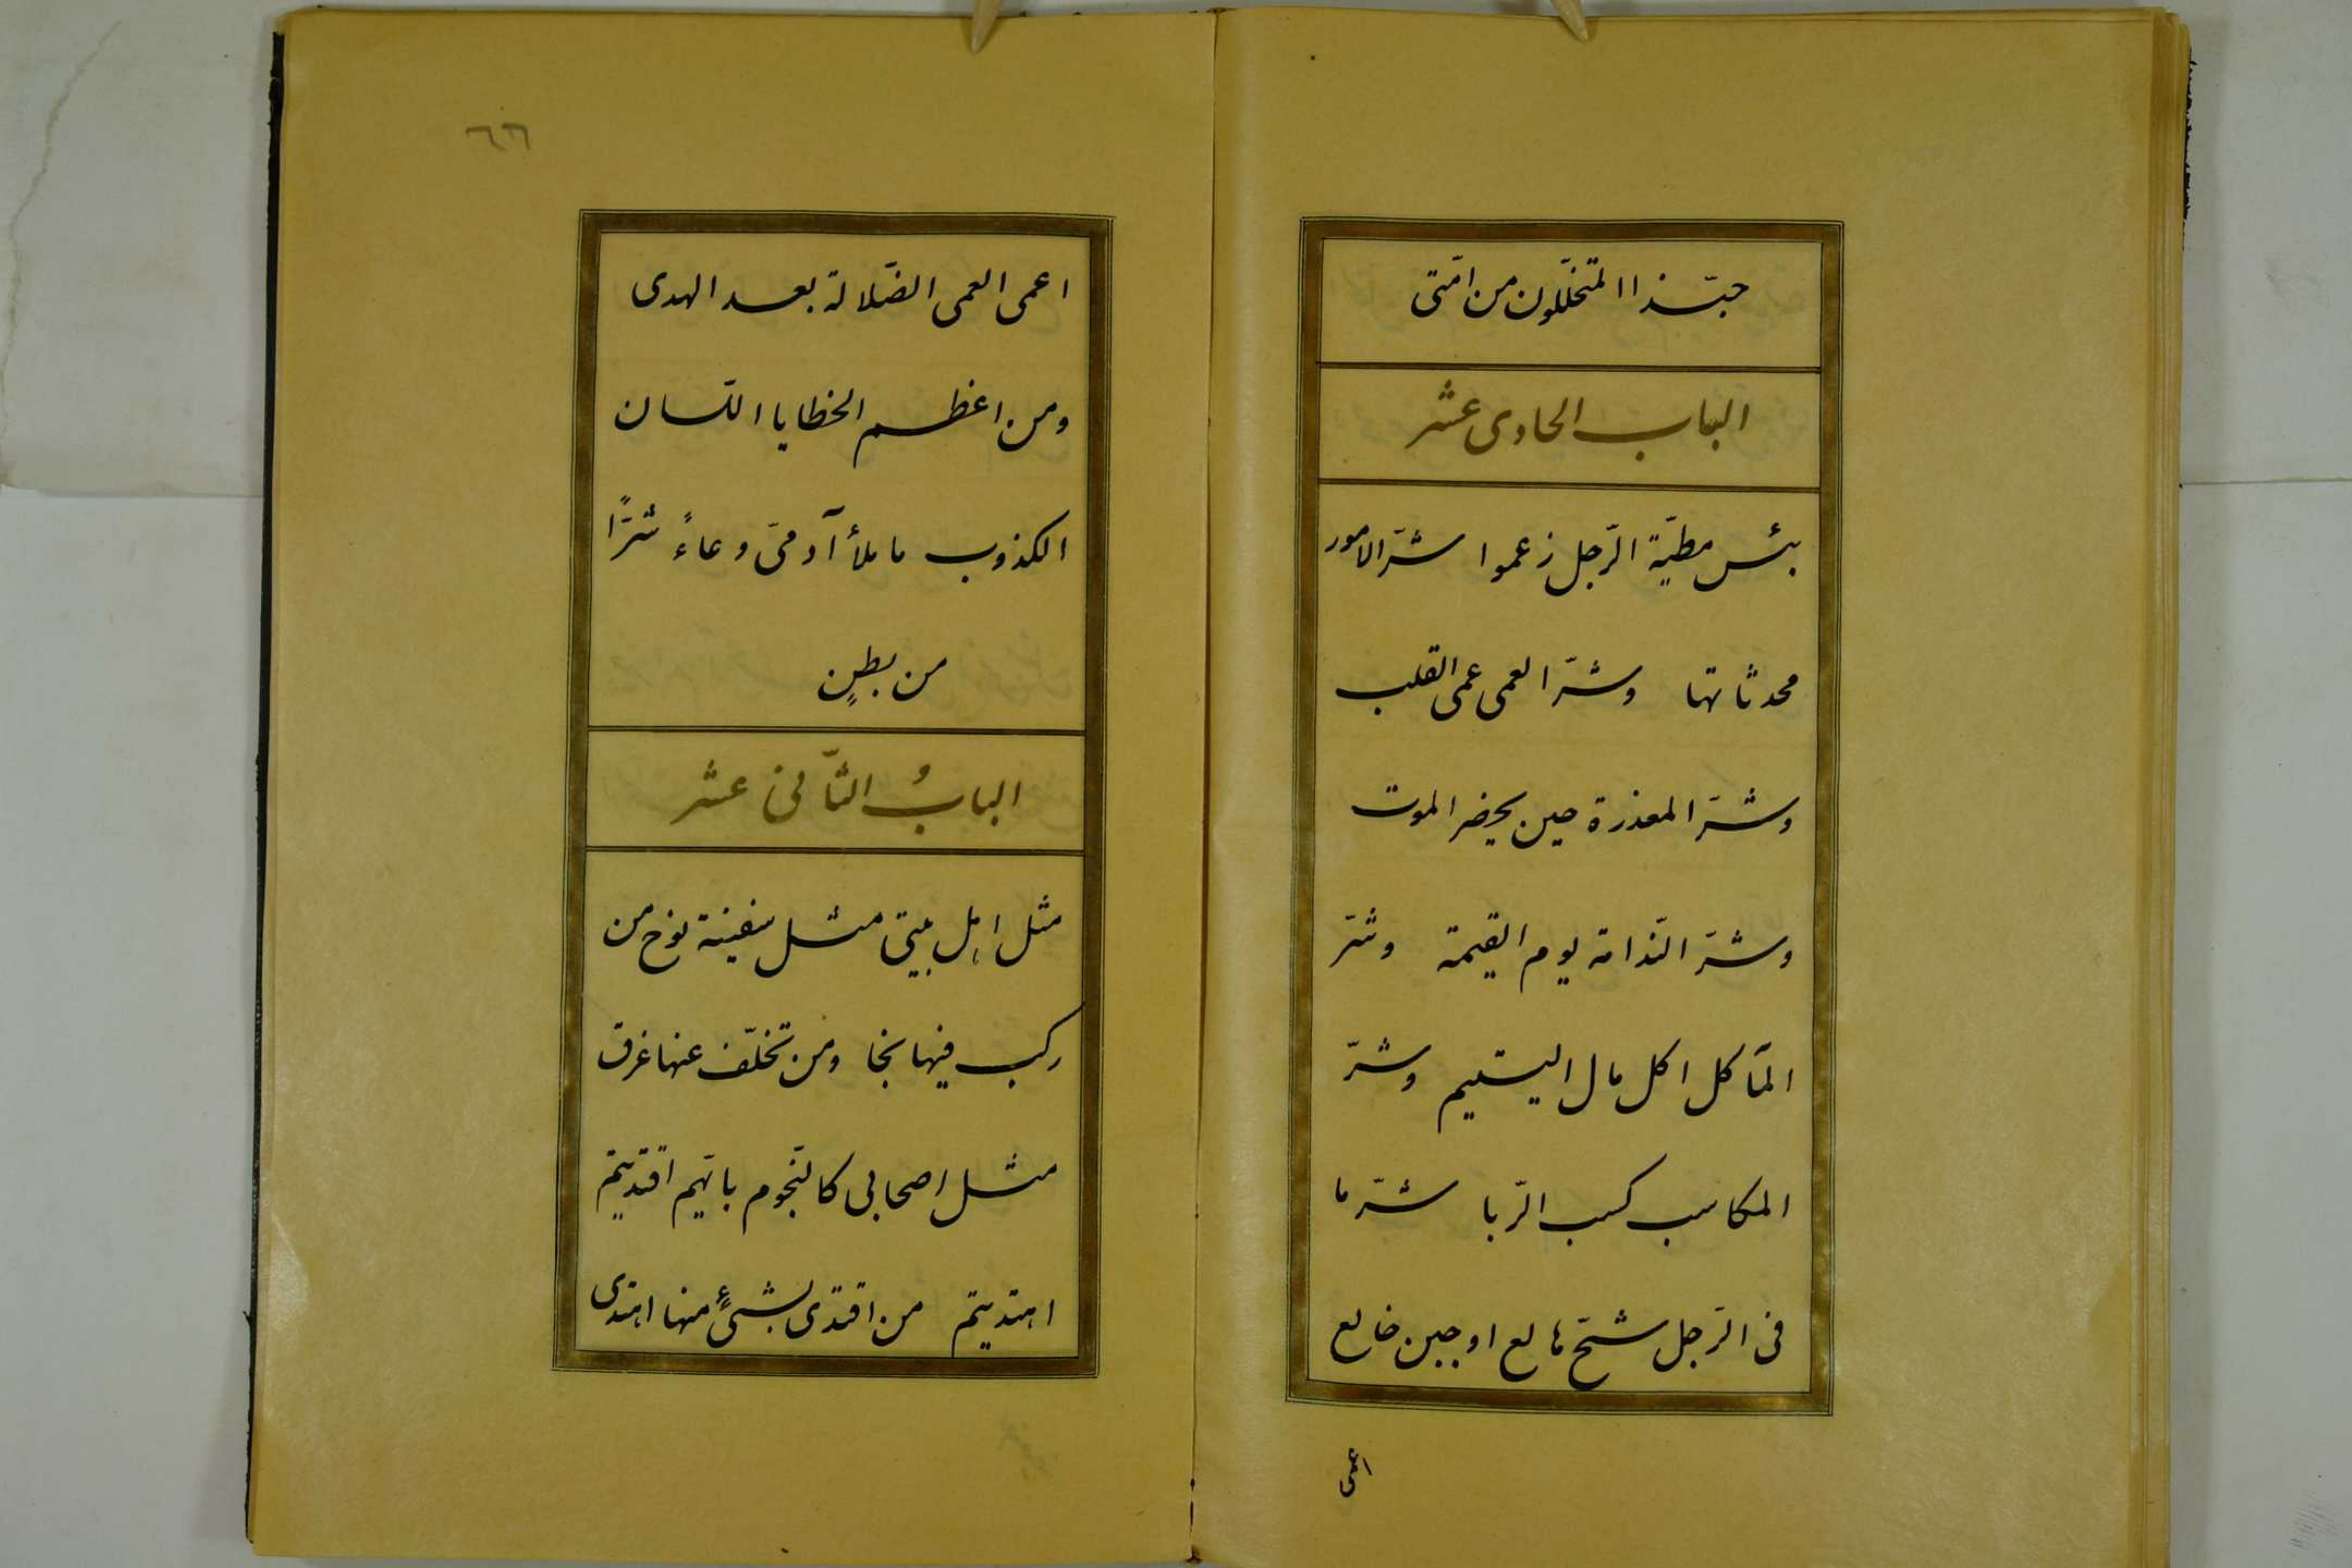 حبّذا المتخلّلون من امّتی
الباب الحادی عشر
بئس مطیّة الرّجل زعموا شرّ الامور
محدثاتها وشرّ العمی عمی القلب
وشرّ المعذرة حین یحضر الموت
وشرّ النّدامة یوم القیمة وشرّ
المآکل اکل مال الیتیم وشرّ
المکاسب کسب الرّبا شرّ ما
فی الرّجل شحّ هالع او جبن خالع
اعمی
٦٦
اعمی العمی الضّلالة بعد الهدی
ومن اعظم الخطایا اللّسان
الکذوب ما ملأ آدمیّ وعاءً شرًّا
من بطنٍ
البابُ الثّانی عشر
مثل اهل بیتی مثل سفینة نوح من
رکب فیها نجا ومن تخلّف عنها غرق
مثل اصحابی کالنّجوم بایّهم اقتدیتم
اهتدیتم من اقتدی بشیءٍ منها اهتدی